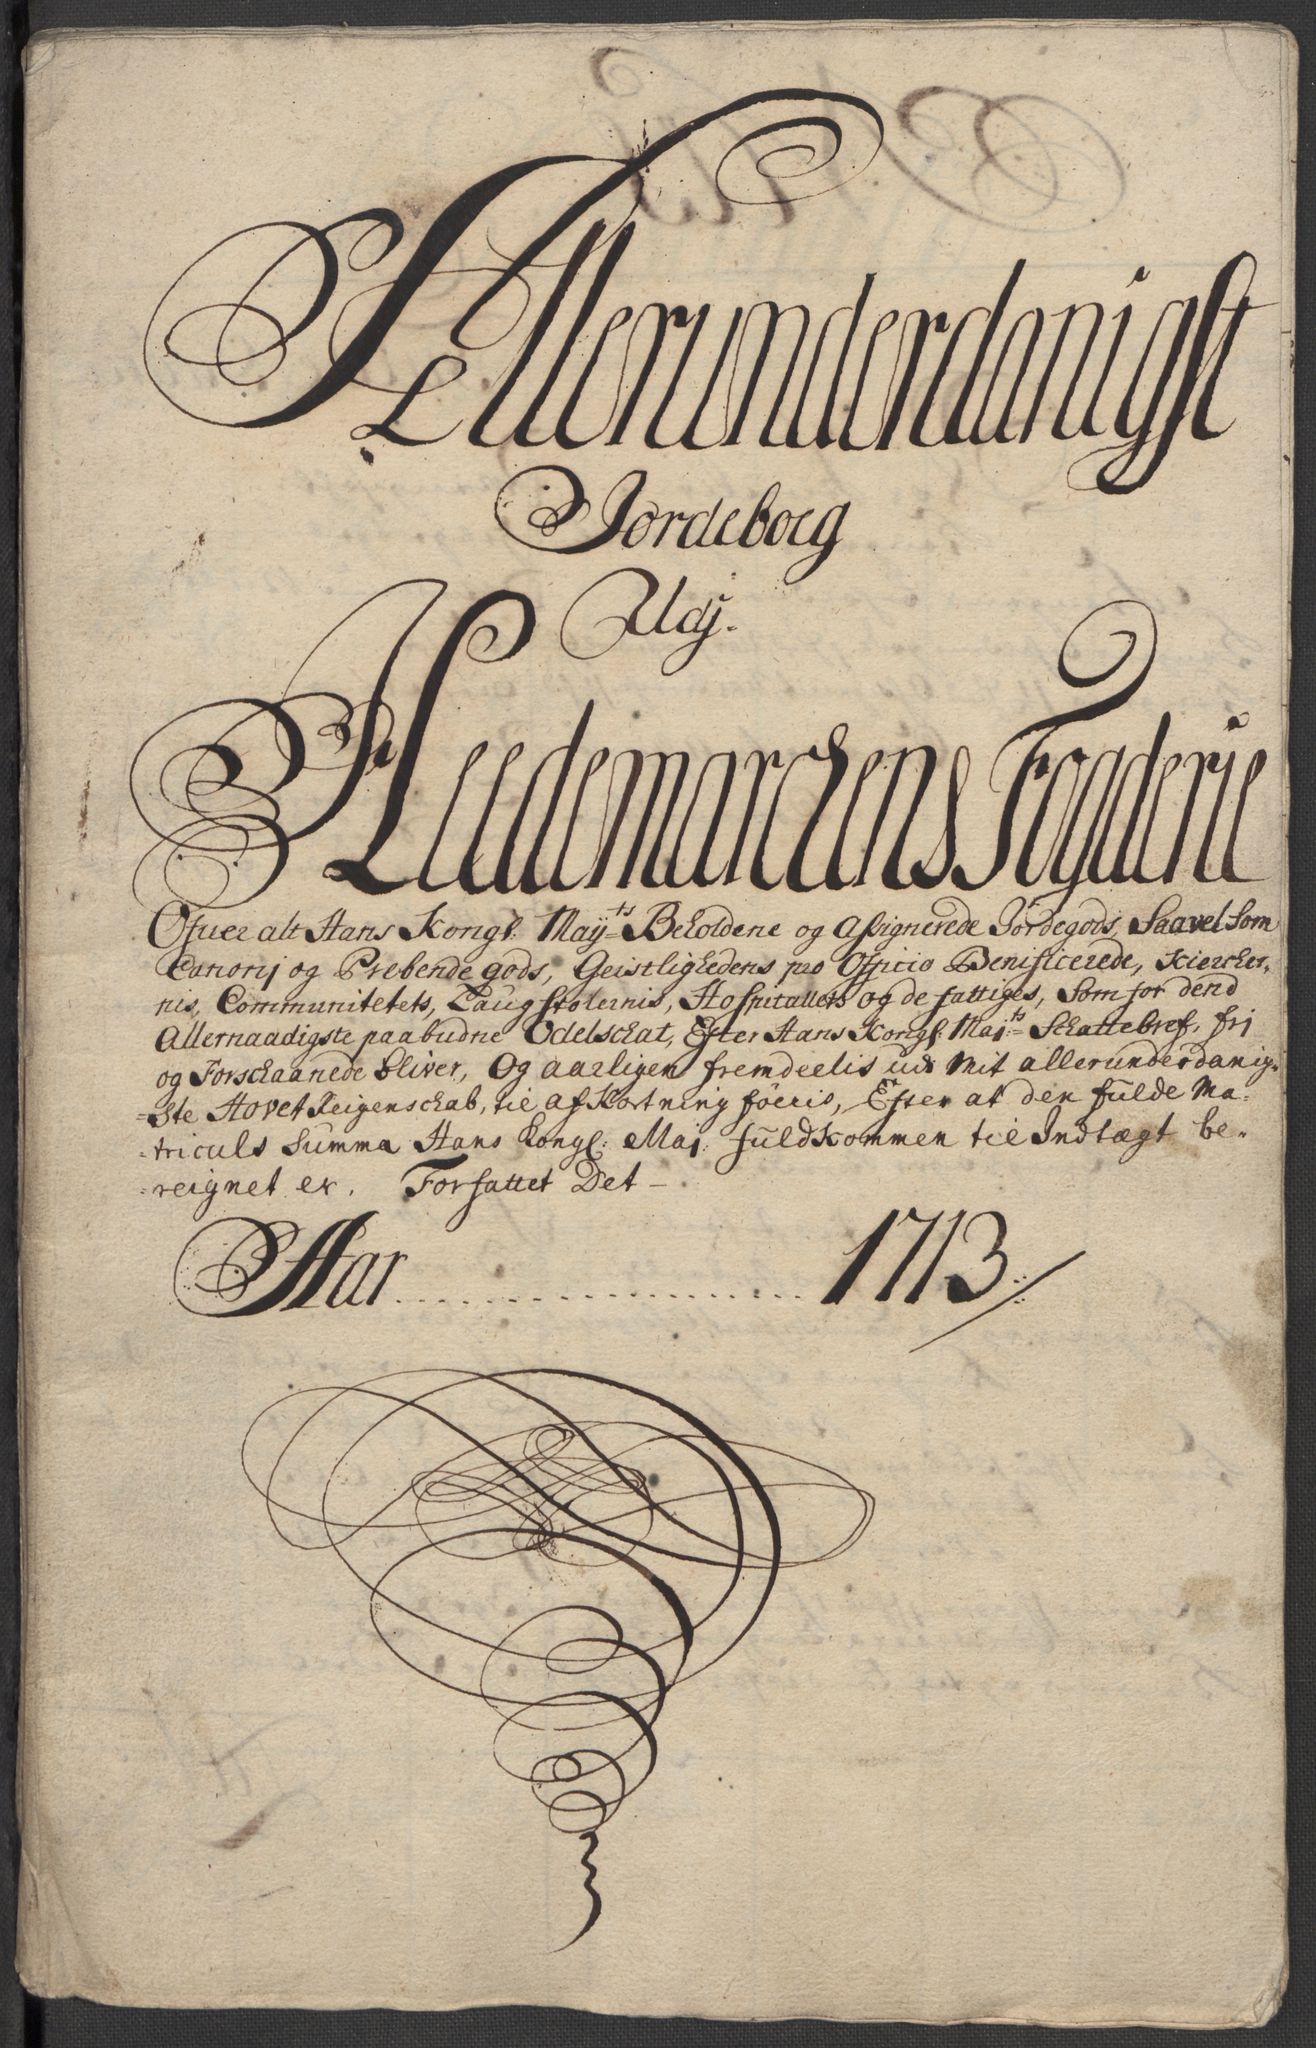 Allerunderdanigst
Jordeboeg
Udj.
Heedemarchens Fogderie
Ofuer alt Hans Kongl: May:ts Beholdene og Assignerede Jordegods, Saavel som
Canonj og Prebende gods, Geistlighedens pro Officio Benificerede, Kiercher¬
nis, Communitetets, Laugstolernis, Hospitallets og de fattiges, som for dend
Allernaadigste paabudne Odelschat, Efter Hans Kongl: Maj:ts Schattebref, frj
og Forschaanede bliver, Og aarligen fremdeelis udj mit allerunderdanig¬
-ste Hovet Reigenschab, til afKortning föeris, Efter at den fulde Ma¬
-triculs Summa Hans Kongl: Maj: fuldkommen til Indtægt be¬
-reignet er. Forfattet Det -
Aar .................... 1713